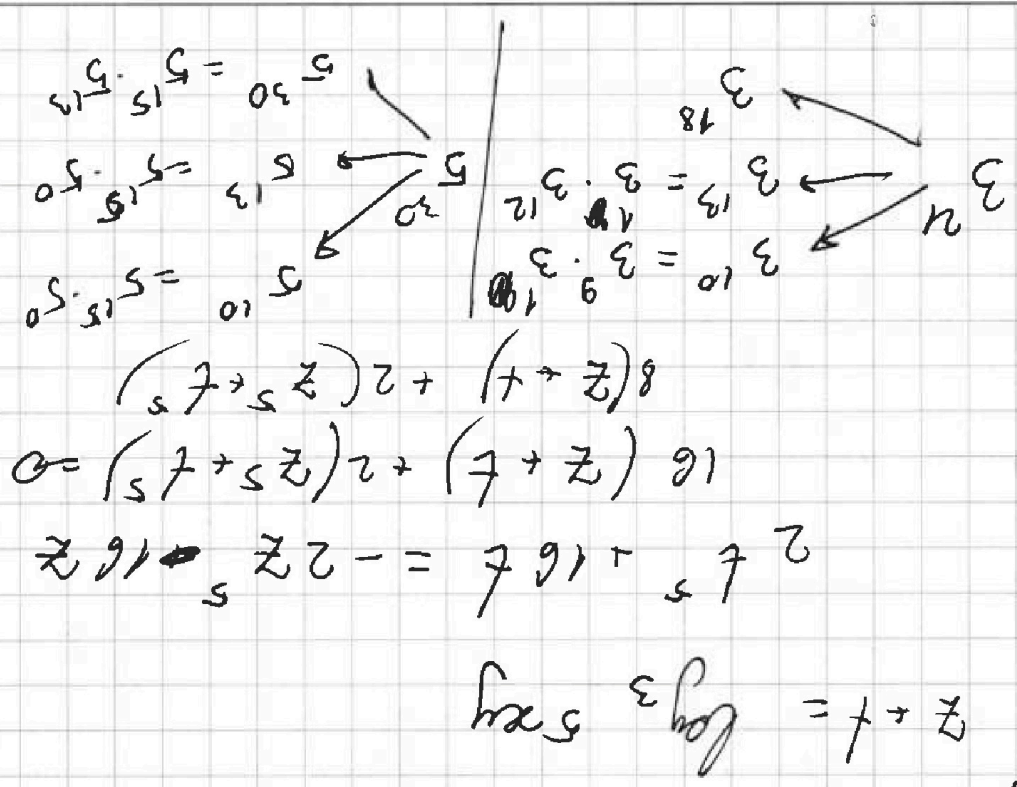 z + t = log₃ 5xy
2t⁵ + 16t = -2z⁵ - 16z
16(z + t) + 2(z⁵ + t⁵) = 0
8(z + t) + 2(z⁵ + t⁵)
3¹⁰ = 3⁹ · 3¹
3²¹ 3¹³ = 3¹ · 3¹²
3¹⁸
5¹⁰ = 5¹⁵ · 5⁰
5³⁰ 5¹³ = 5¹⁵ · 5⁰
5³⁰ = 5¹⁵ · 5¹³